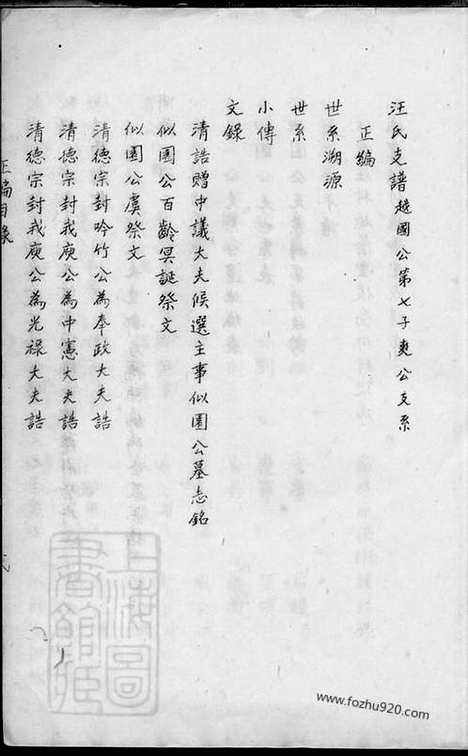 汪氏支譜 越國公第七子爽公支系
正編
世系溯源
世系
小傳
文錄
清誥贈中議大夫候選主事似園公墓志銘
似園公百齡冥誕祭文
似園公虞祭文
清德宗封吟竹公為奉政大夫誥
清德宗封我庾公為中憲大夫誥
清德宗封我庾公為光祿大夫誥
正編目錄
上海圖書館藏
www.fozhu920.com